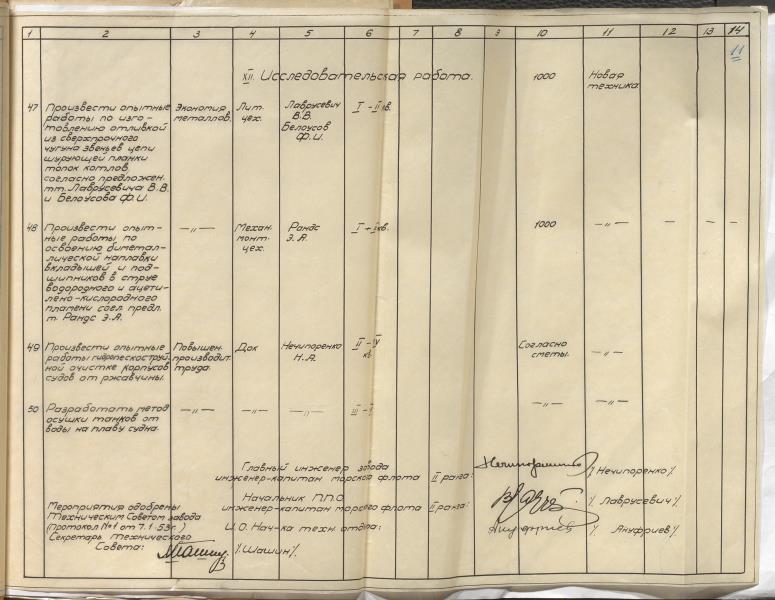 1 2 3 4 5 6 7 8 9 10 11 12 13 14
11
XII. Исследовательская работа. 1000 Новая
техника
47 Произвести опытные Экономия Лит. Лаврусевич I – II кв.
работы по изго- металлов. цех. В.В.
товлению отливкой Белоусов
из сверхпрочного Ф.И.
чугуна звеньев цепи
шурующей планки
топок котлов,
согласно предложен.
тт. Лаврусевича В.В.
и Белоусова Ф.И.
48 Произвести опыт- —„— Механ. Рандс 1000 —„— — — —
ные работы по монт. Э.А.
освоению биметал- цех.
лической наплавки
вкладышей и под-
шипников в струе
водородного и ацети-
лено-кислородного
пламени согл. предл.
т. Рандс Э.А.
49 Произвести опытные Повышен. Док Нечипоренко II – IV Согласно
работы гидропескоструй- производит. Н.А. кв. сметы. —„—
ной очистке корпусов труда.
судов от ржавчины.
50 Разработать метод —„— —„— —„— —„— —„—
осушки танков от
воды на плаву судна.
Главный инженер завода
инженер-капитан морского флота II ранга: /Нечипоренко/.
Начальник П.П.О
инженер-капитан морского флота II ранга: /Лаврусевич/
И.О. Нач-ка техн. отдела: /Ануфриев/.
Мероприятия одобрены
Техническим Советом завода
(Протокол №1 от 7.1.53г.)
Секретарь Технического
Совета: /Шашин/.